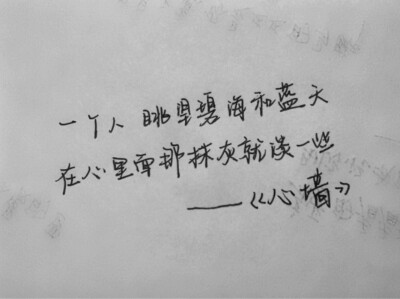 一个人 眺望碧海和蓝天
在心里面那抹灰就淡一些
——《心墙》